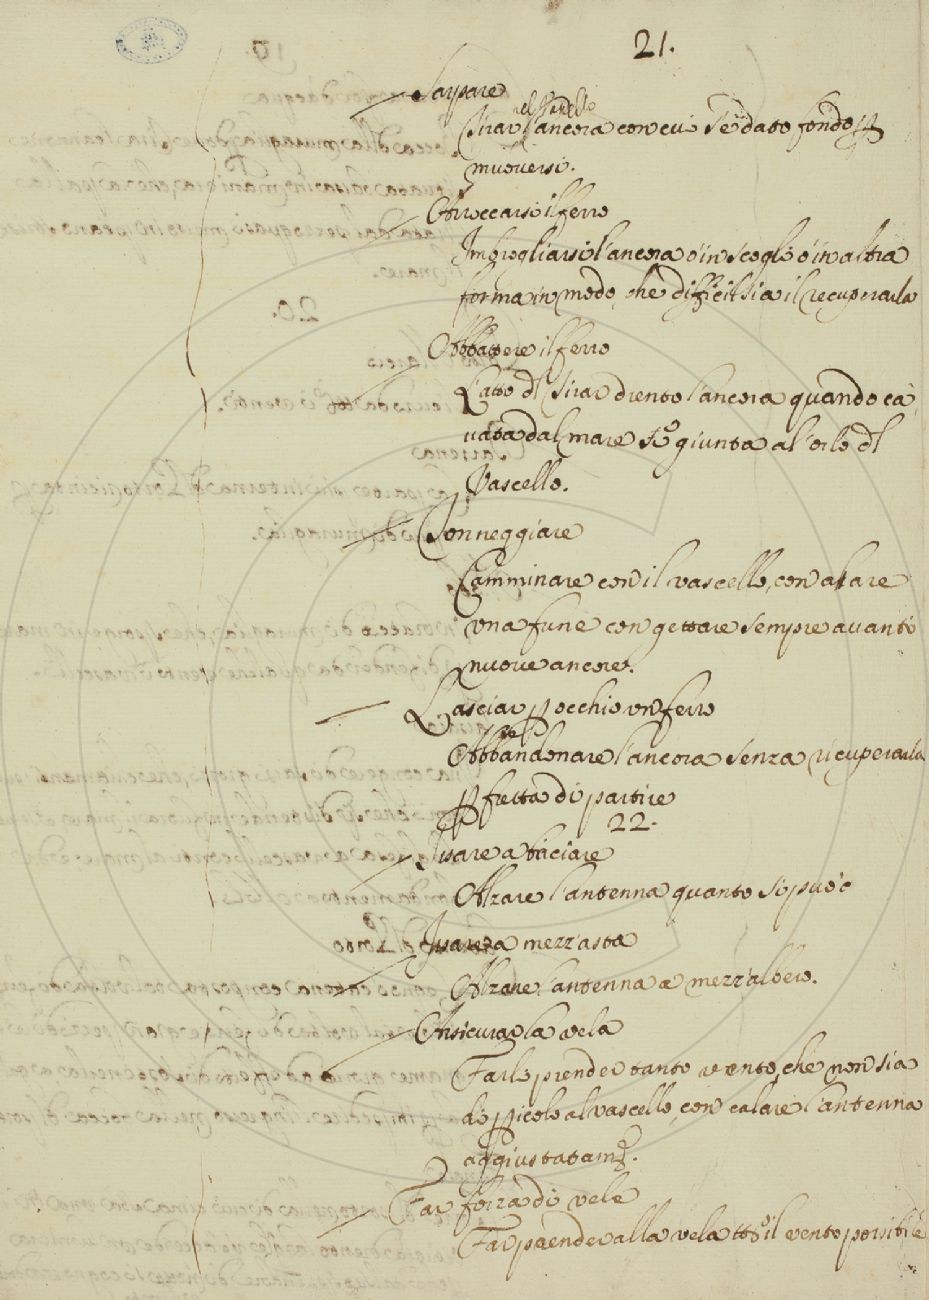 21.
Sarpare
nel Vascello
Tirar l'ancora con cui s'è dato fondo p
muoversi.
Arroccarsi il ferro
Imbrogliarsi l'ancora ò in scogli ò in altra
forma in modo, che difficil sia il recuperarla
Abbattere il ferro
L'atto dl tirar drento l'ancora quando ca
uata dal mare s'è giunta al orlo dl
Vascello.
Tonneggiare
Camminare con il vascello, con alare
vna fune con gettare sempre auanti
nuoue ancore.
Lasciar p occhio vn ferro
Abbandonare l'ancora senza ricuperarla
p fretta di partire
22.
Issare a baciare
Alzare l'antenna quanto si può
Issare a mezz'asta
Alzare l'antenna a mezz'albero.
Assicurar la vela
Farle prender tanto vento, che non sia
di picolo al vascello, con calare l'antenna
aggiustatam.e
Far forza di vele
Far prender alla vela tto il vento possibile